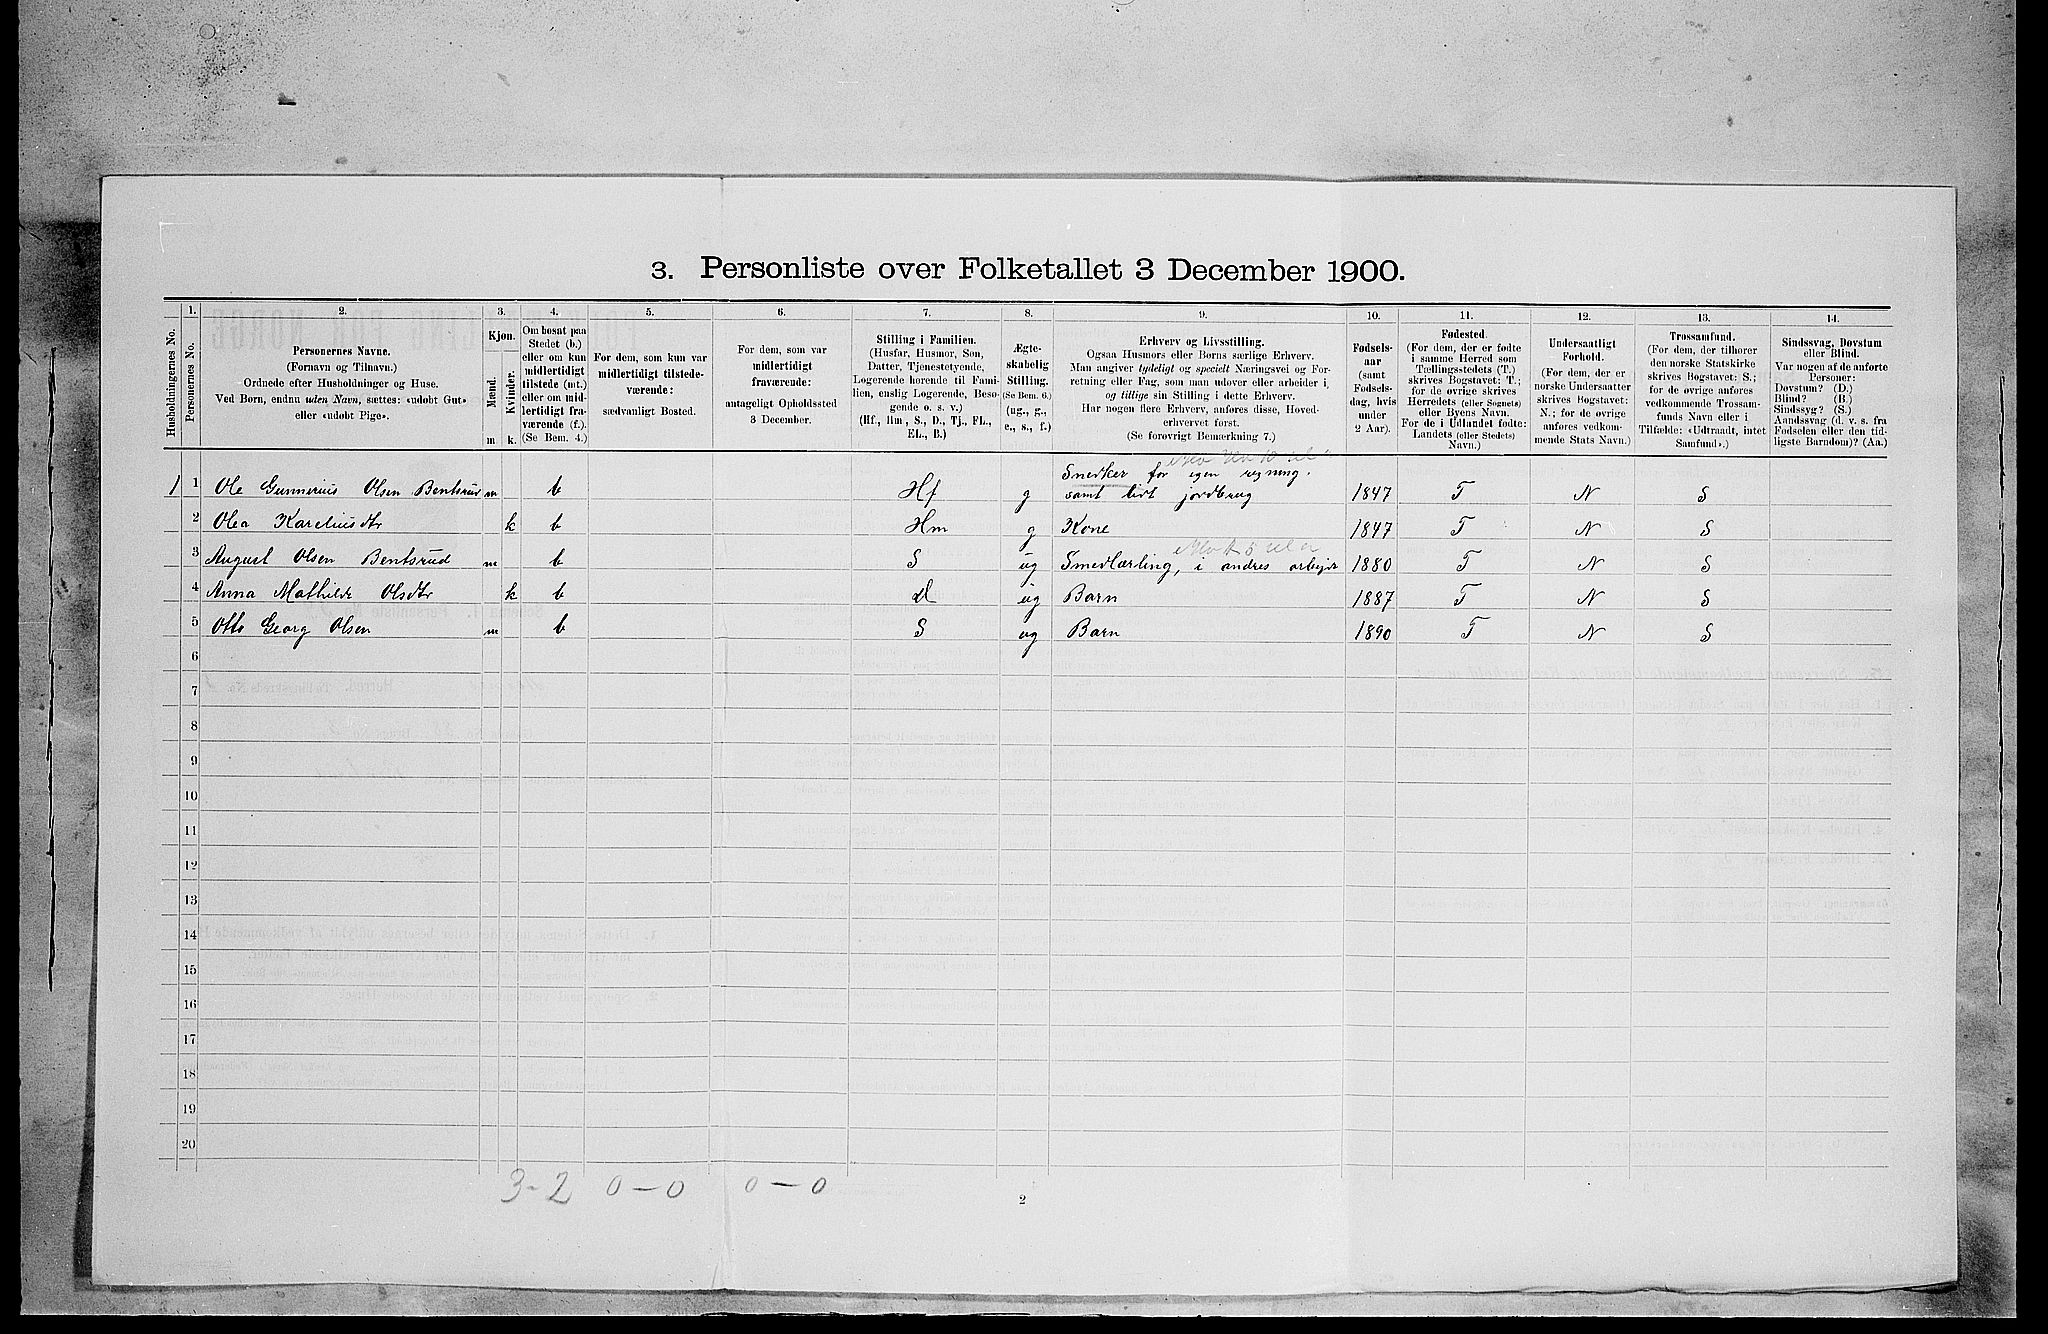 3. Personliste over Folketallet 3 December 1900.
Husholdningernes No.
1.
Personernes No.
2.
Personernes Navne.
(Fornavn og Tilnavn.)
Ordnede efter Husholdninger og Huse.
Ved Børn, endnu uden Navn, sættes: «udøbt Gut»
eller «udøbt Pige».
3.
Kjøn.
Mænd.
m
Kvinder.
k.
4.
Om bosat paa
Stedet (b.)
eller om kun
midlertidigt
tilstede (mt.)
eller om mid-
lertidigt fra-
værende (f.).
(Se Bem. 4.)
5.
For dem, som kun var
midlertidigt tilstede-
værende:
sædvanligt Bosted.
6.
For dem, som var
midlertidigt
fraværende:
antageligt Opholdssted
3 December.
7.
Stilling i Familien.
(Husfar, Husmor, Søn,
Datter, Tjenestetyende,
Logerende hørende til Fami-
lien, enslig Logerende, Besø-
gende o. s. v.)
(Hf., Hm., S., D., Tj., FL.,
EL., B.)
8.
Ægte-
skabelig
Stilling.
(Se Bem. 6.)
(ug., g.,
e., s., f.)
9.
Erhverv og Livsstilling.
Ogsaa Husmors eller Børns særlige Erhverv.
Man angiver tydeligt og specielt Næringsvei og For-
retning eller Fag, som man udøver eller arbeider i,
og tillige sin Stilling i dette Erhverv.
Har nogen flere Erhverv, anføres disse, Hoved-
erhvervet først.
(Se forøvrigt Bemærkning 7.)
10.
Fødsels-
aar
(samt
Fødsels-
dag, hvis
under
2 Aar).
11.
Fødested.
(For dem, der er fødte
i samme Herred som
Tællingsstedets (T.)
skrives Bogstavet: T.;
for de øvrige skrives
Herredets (eller Sognets)
eller Byens Navn.
For de i Udlandet fødte:
Landets (eller Stedets)
Navn.)
12.
Undersaatligt
Forhold.
(For dem, der er
norske Undersaatter
skrives Bogstavet:
N.; for de øvrige
anføres vedkom-
mende Stats Navn.)
13.
Trossamfund.
(For dem, der tilhører
den norske Statskirke
skrives Bogstavet: S.;
for de øvrige anføres
vedkommende Trossam-
funds Navn eller i
Tilfælde: «Udtraadt, intet
Samfund».)
14.
Sindssvag, Døvstum
eller Blind.
Var nogen af de anførte
Personer:
Døvstum? (D.)
Blind? (B.)
Sindssyg? (S.)
Aandssvag (d. v. s. fra
Fødselen eller den tid-
ligste Barndom)? (Aa.)
1 1 Ole Gunnerius Olsen Bentsrud m b Hf g Snedker for egen regning.
samt lidt jordbrug 1847 T N S
2 Olea Kareliusdtr k b Hm g Kone 1847 T N S
3 August Olsen Bentsrud m b S ug Smedlærling, i andres arbejde 1880 T N S
4 Anna Mathilde Olsdtr k b d ug Barn 1887 T N S
5 Otto Georg Olsen m b S ug Barn 1890 T N S
6
7
8
9
10
11
12
13
14
15
16
17
18
19
20
3-2 0-0 0-0
2